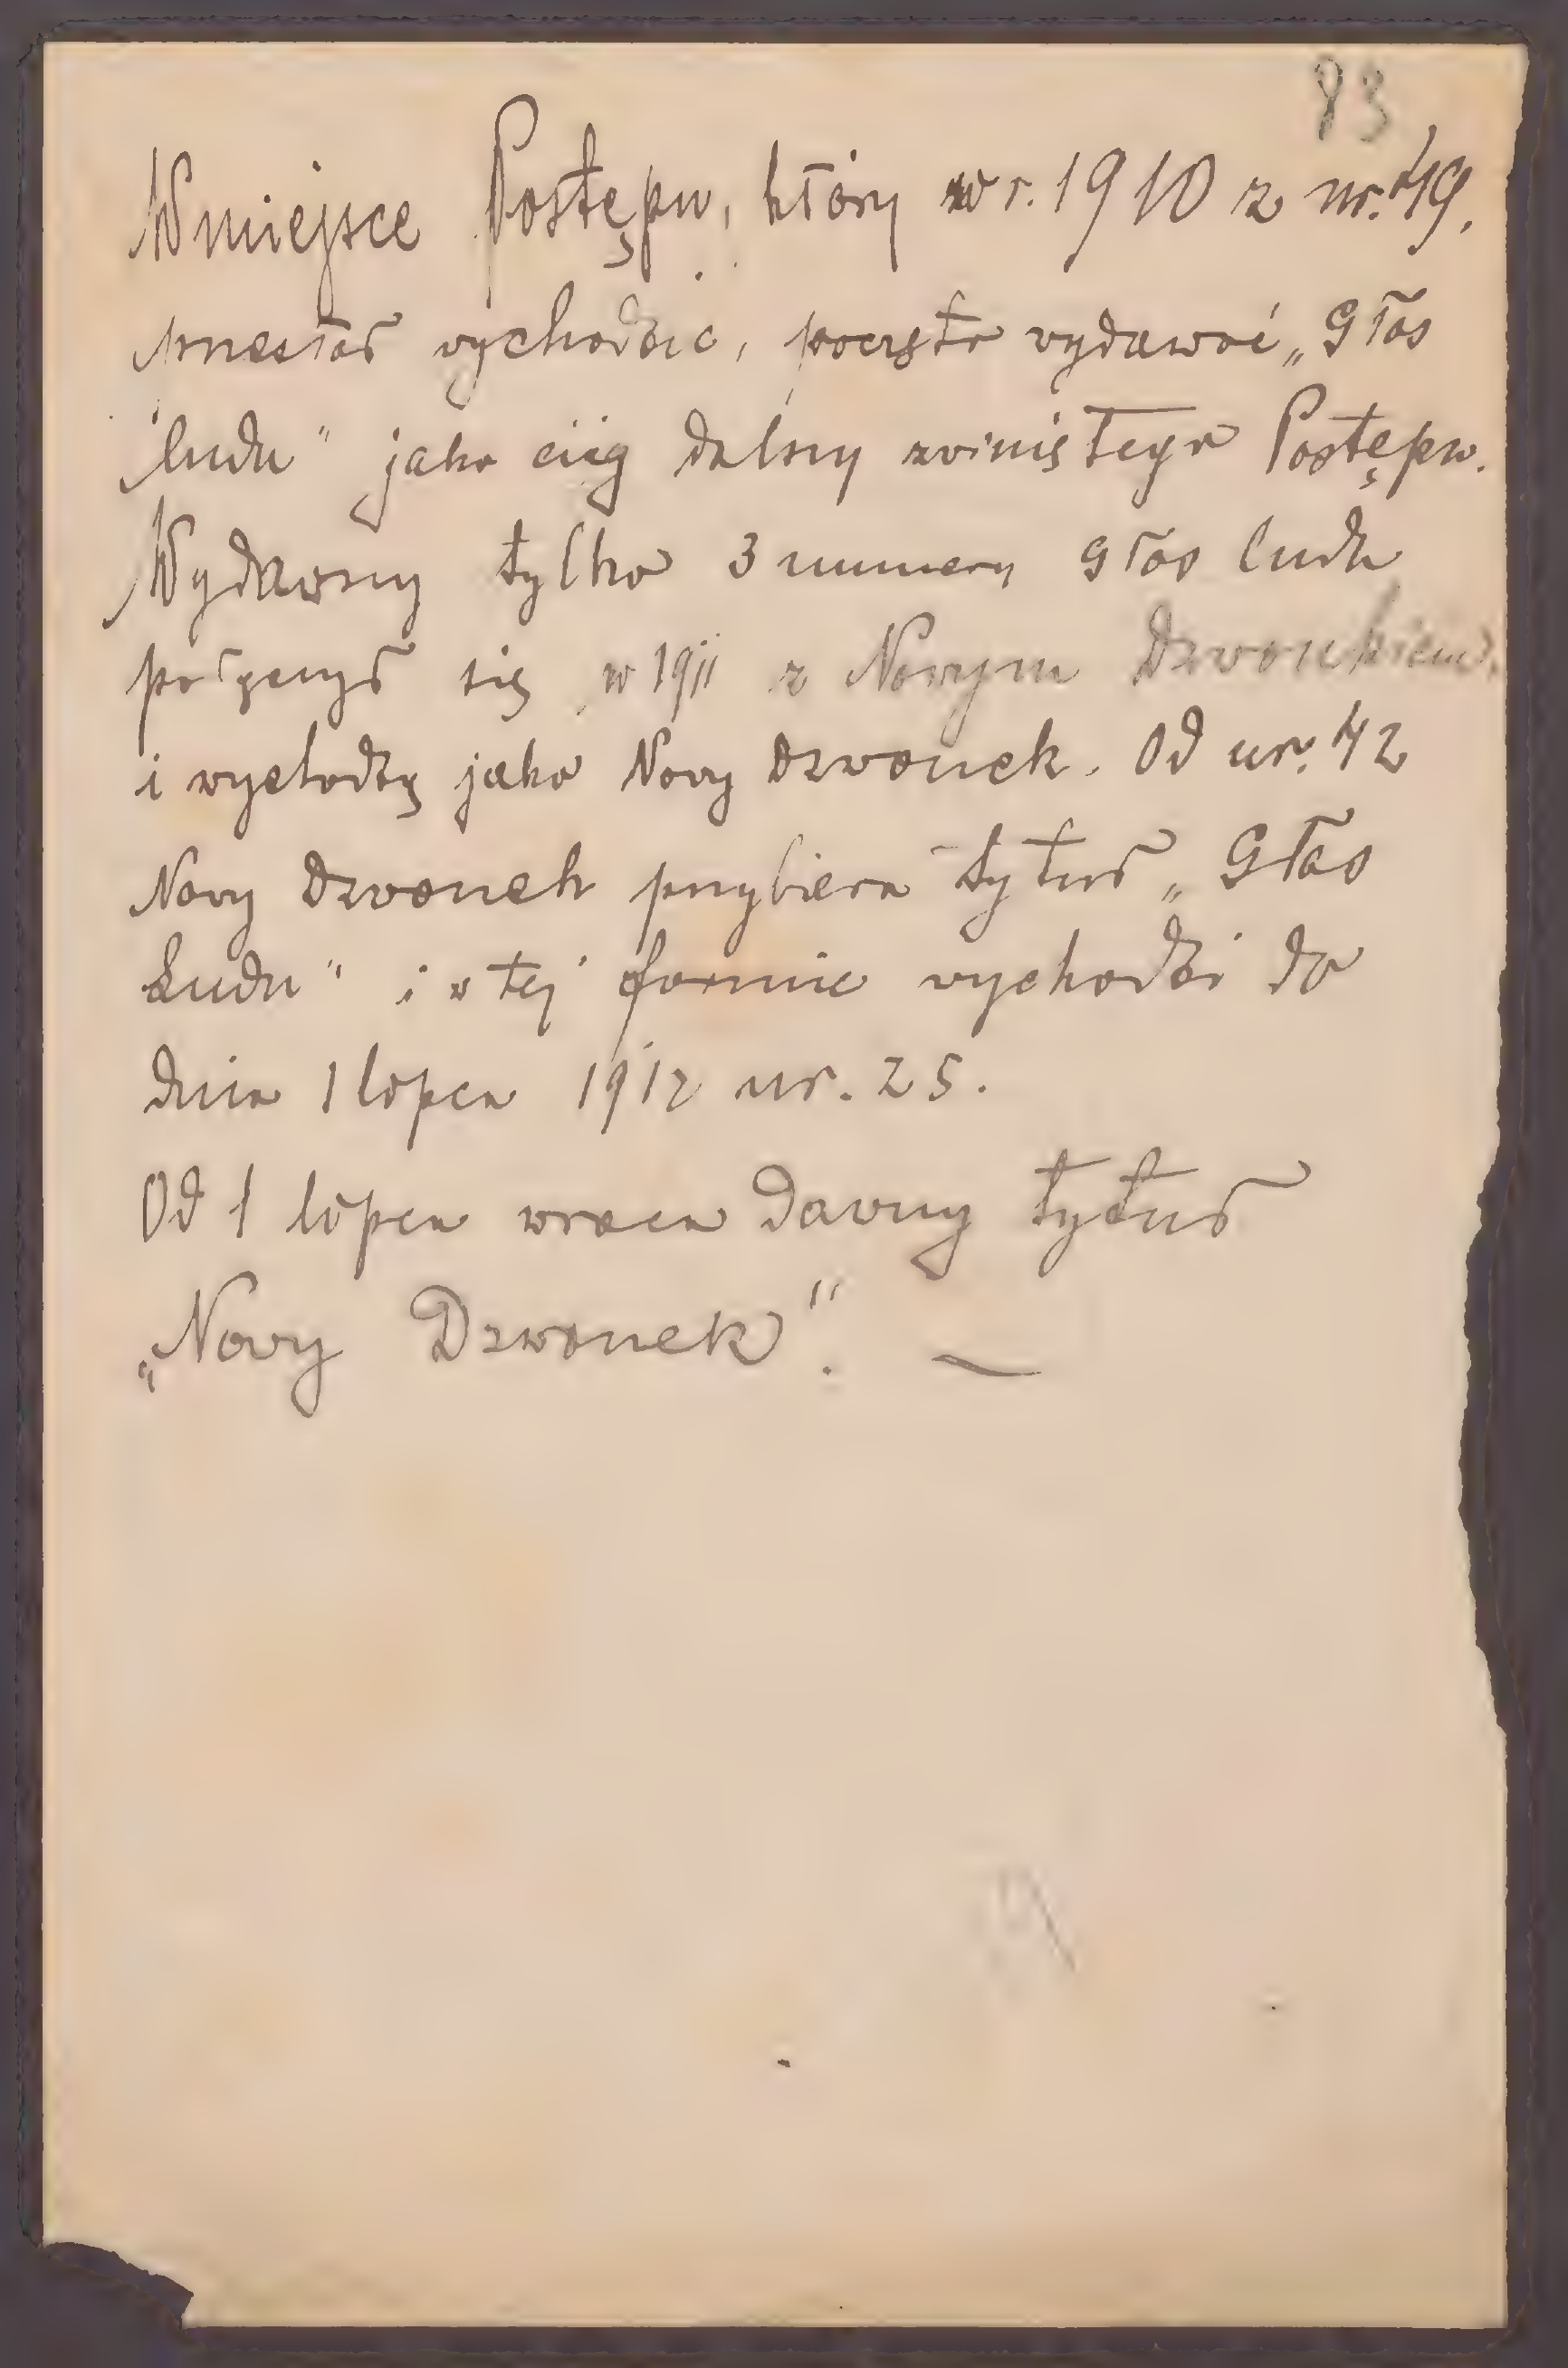 83
W miejsce Postępu, który w r. 1910 z nr. 49.
przestał wychodzić, poczęto wydawać „Głos
ludu" jako ciąg dalszy zwiniętego Postępu.
Wydawszy tylko 3 numery Głos ludu
połączył się w 1911 z Nowym Dzwonkiem.
i wychodzą jako Nowy Dzwonek. Od nr. 42
Nowy Dzwonek przybiera tytuł „Głos
Ludu" i w tej formie wychodzi do
dnia 1 lipca 1912 nr. 25.
Od 1 lipca wraca dawny tytuł
„Nowy Dzwonek".